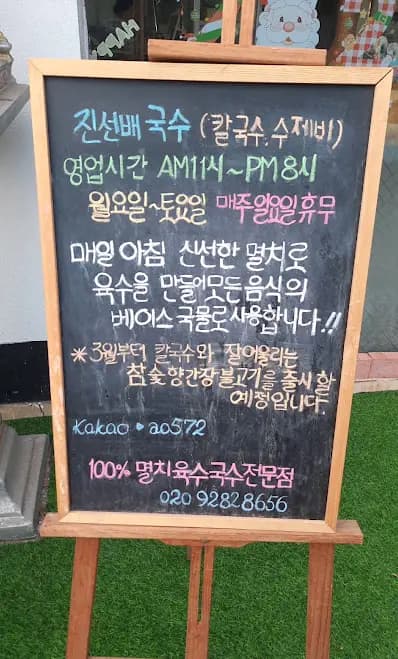 진선배 국수 (칼국수.수제비)
영업시간 AM11시~PM8시
월요일~토요일 매주일요일휴무
매일 아침 신선한 멸치로
육수을 만들어모든음식의
베이스 국물로사용합니다.!!
※3월부터 칼국수와 잘어울리는
참숯향간장불고기를 출시할
예정입니다.
kakao • ao572
100% 멸치육수국수전문점
020 9282 8656